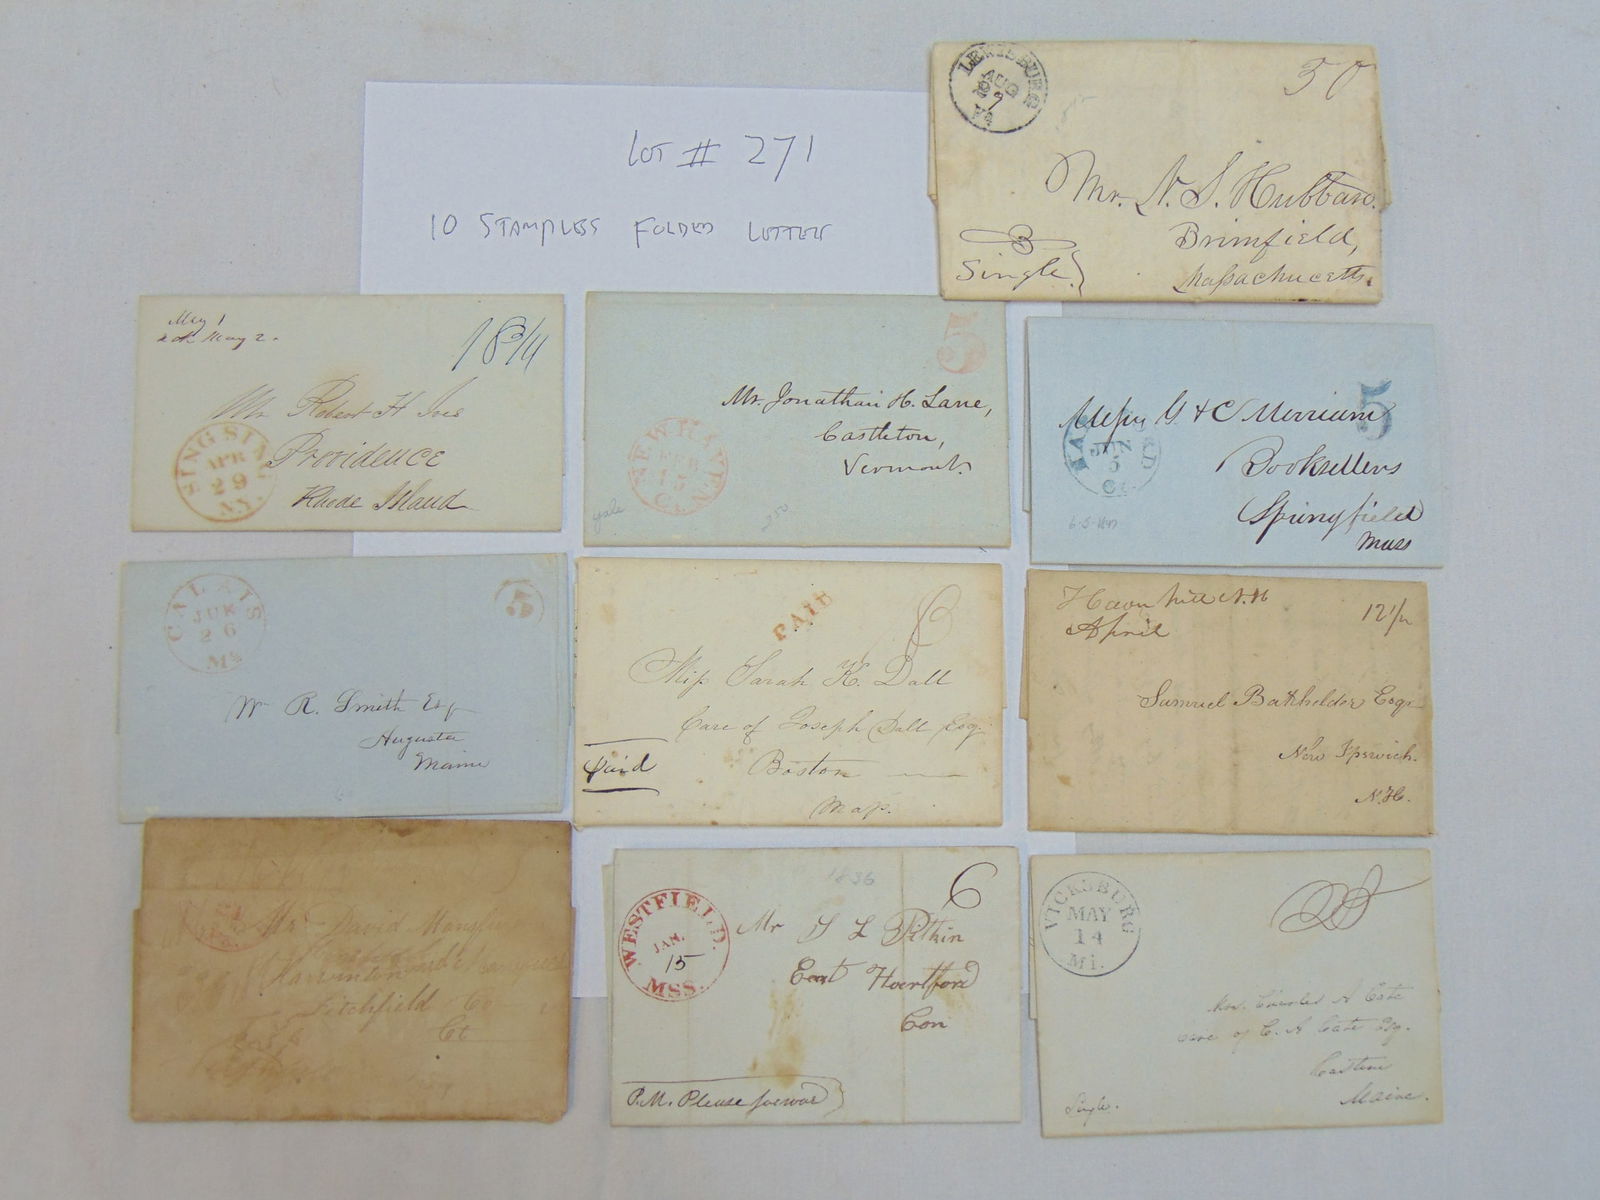 LOT # 271
10 STAMPLESS FOLDED LETTERS
LEWISBURG
AUG
7
Va
50
Mr. N. S. Hubbard.
Brimfield,
Massachucetts.
Single
May 1
May 2.
18 3/4
Mr Robert H Ives
Providence
Rhode Island
SING SING
APR
29
N.Y.
5
Mr. Jonathan H. Lane,
Castleton,
Vermont.
NEW HAVEN
FEB
15
Ct.
yale
250
5
Messrs G & C Merriam
Booksellers
Springfield
Mass
HARTFORD
JUN
5
Ct.
6-5-1847
CALAIS
26
Me
5
Wm R. Smith Esq
Augusta
Maine
PAID
6
Miss Sarah K. Dall
Care of Joseph Dall Esq
Boston
Mass.
Paid
Haverhill N.H
April
12 1/2
Samuel Batchelder Esqr
New Ipswich.
N.H.
Mr David
Litchfield Co
Ct
WESTFIELD.
JAN.
15
MSS.
1836
6
Mr S L Pitkin
East Hartford
Con
P.M. Please forward
VICKSBURG
MAY
14
Mi.
Mrs. Charles A Cate
Care of C. A Cate Esq.
Castine
Maine.
Single.